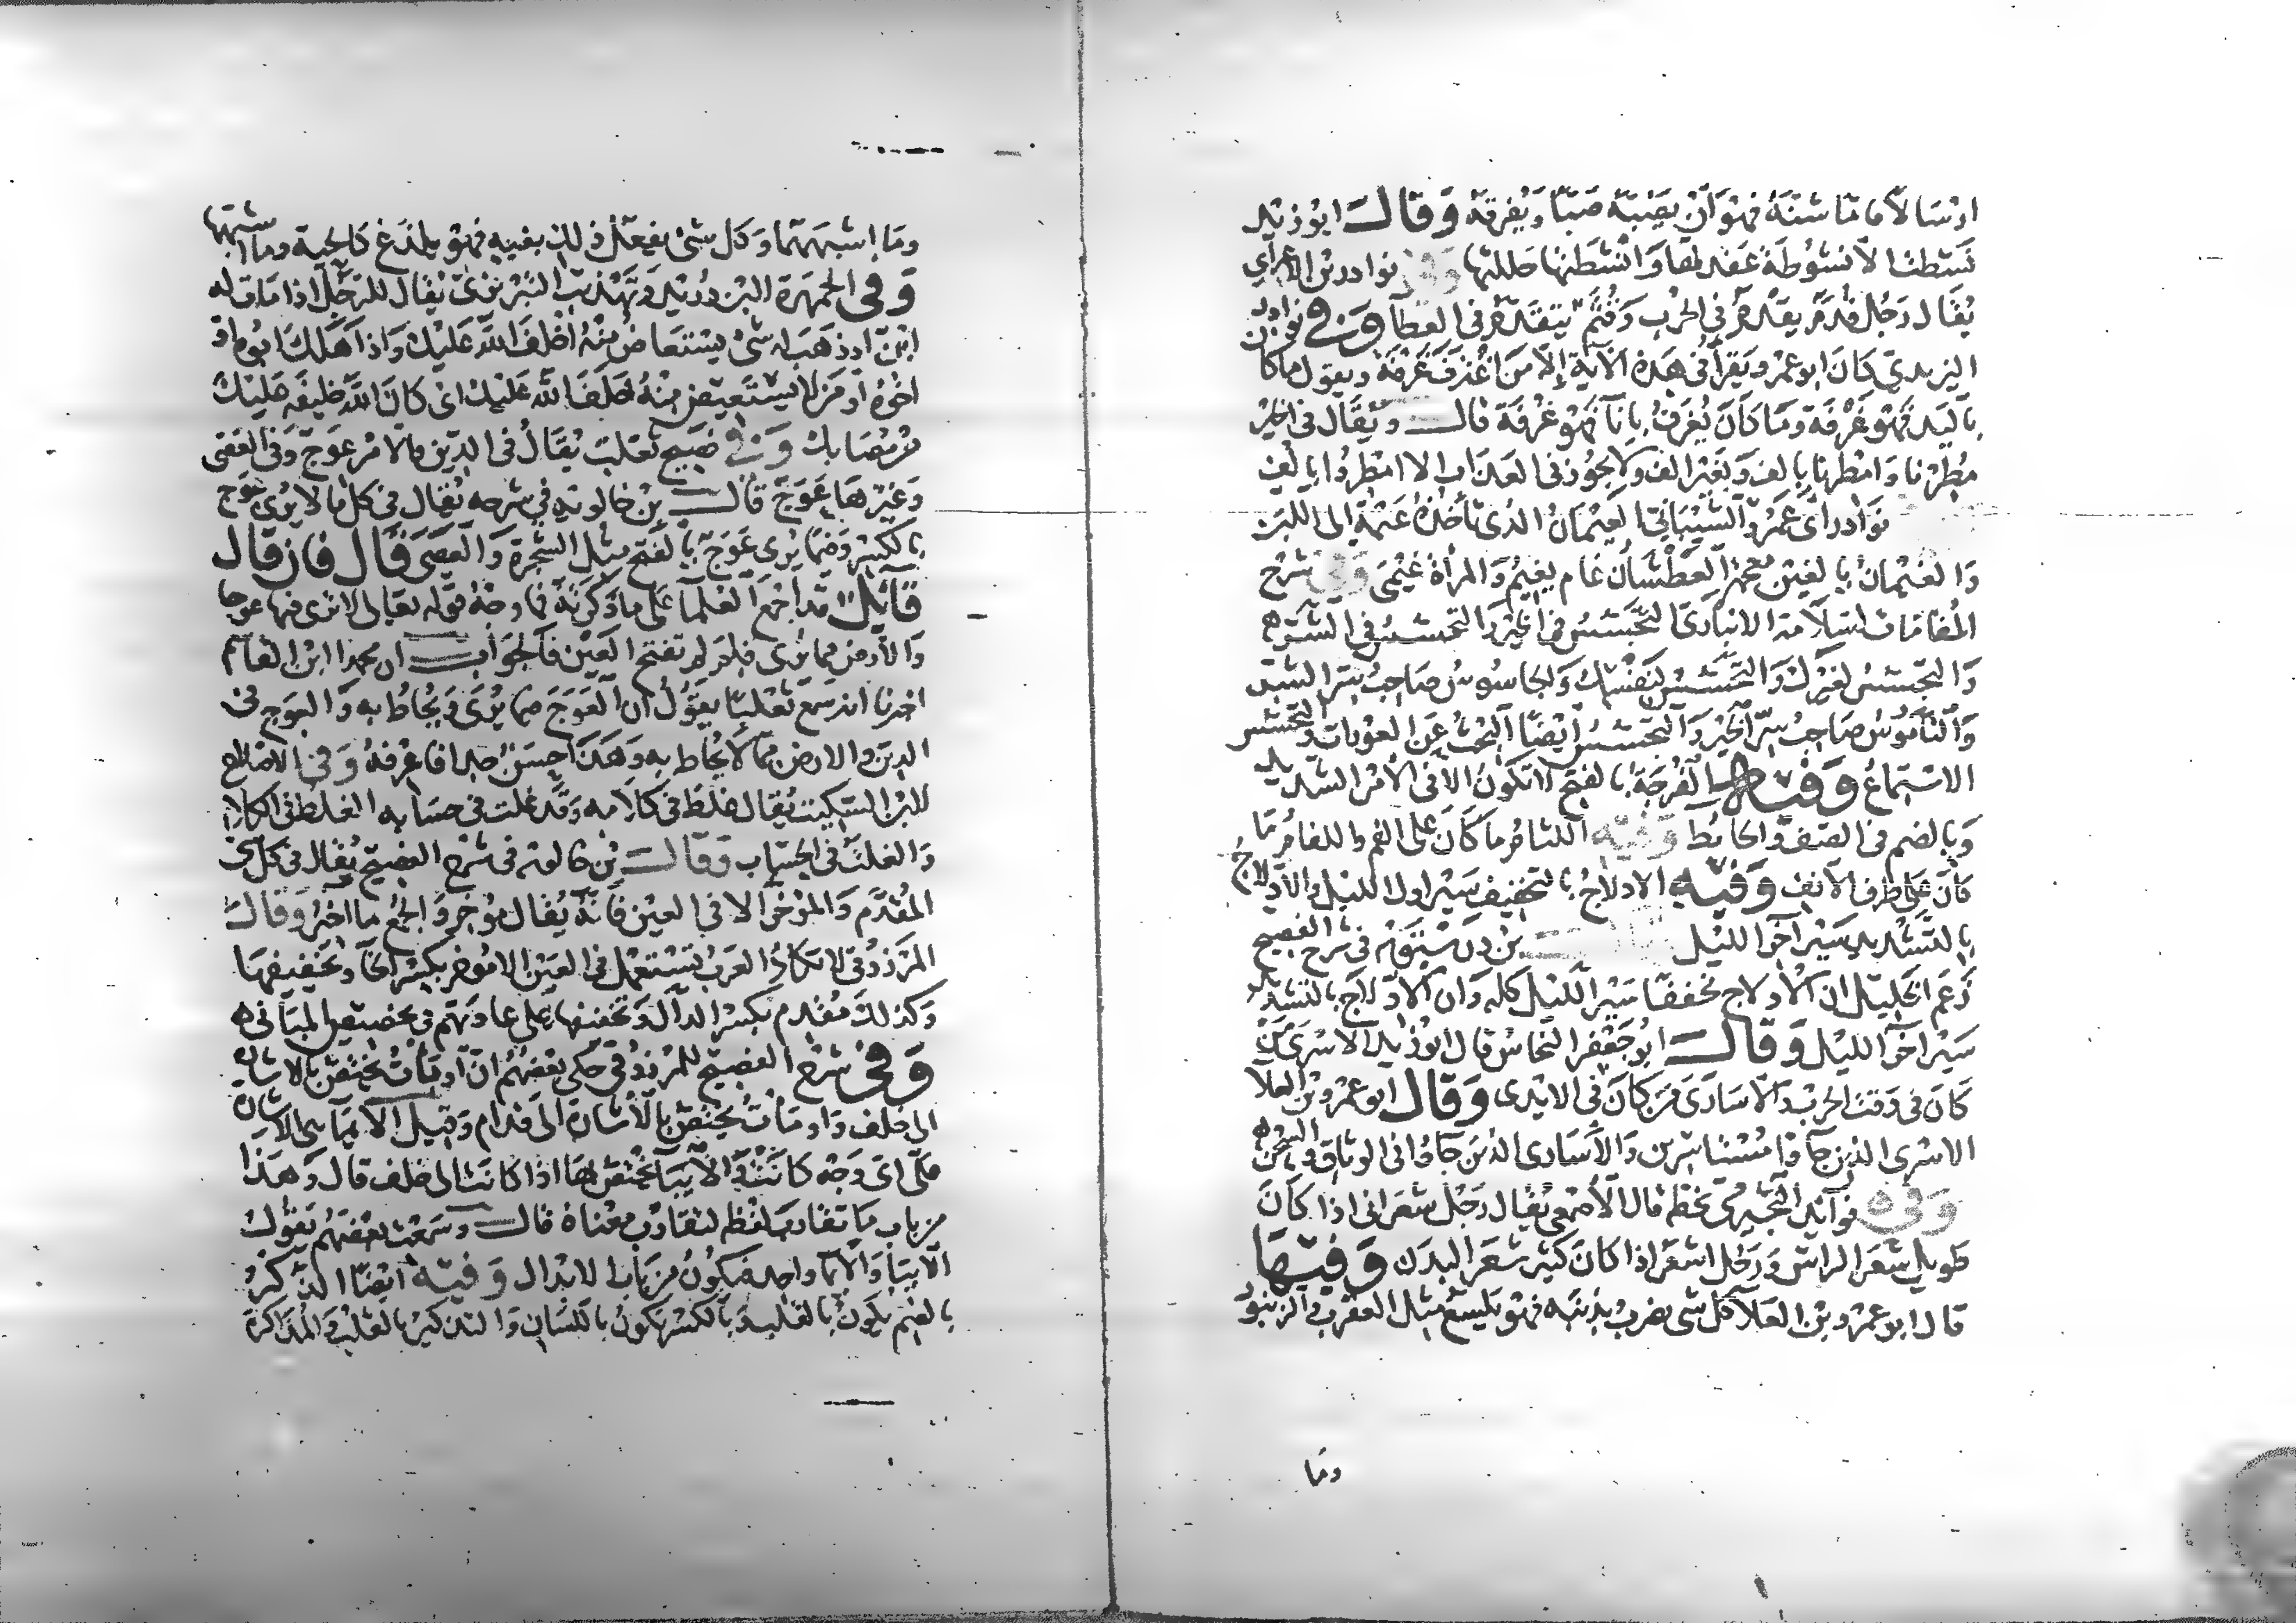 ارسالا فاما شنه فهو ان يصبه صبا ويفرقه وقال ابو زيد
نشطت الانشوطة عقدتها وانشطتها حللتها وفي نوادر بن الاعرابي
يقال رجل قدم يقدم في الحرب وقثم يتقدم في العطا وفي نوادر
اليزيدي كان ابو عمرو يقرأ في هذه الآية إلا من اغترف غرفة ويقول ما كان
باليد فهو غرفة وما كان يغرف بانآ فهو غرفة قال ويقال في الخير
مطرنا وامطرنا بالف وبغير الف ولا يجوز في العذاب الا امطروا بالف
نوادر أبي عمرو الشيباني العيمان الذي تأخذه عيمة الى اللبن
والغيمان بالغين معجمة العطشان غام يغيم والمرأة غيمى وفي شرح
المقامات لسلامة الانباري التحسس في الخير والتجسس في الشر
والتجسس لغيرك والتحسس لنفسك والجاسوس صاحب سر الشر
والناموس صاحب سر الخير والتجسس ايضا البحث عن العورات والتحسس
الاستماع وفيه الفرجة بالفتح لا تكون الا في الأمر الشديد
وبالضم في الصف والحائط وفيه اللثام ما كان على الفم واللفام ما
كان على طرف الانف وفيه الادلاج بالتخفيف سير اول الليل والادلاج
بالتشديد سير آخر الليل بن درستويه في شرح الفصيح
زعم الخليل ان الادلاج مخففا سير الليل كله وان الادلاج بالتشديد
سير آخر الليل وقال ابو جعفر النحاس قال ابو زيد الاسرى من
كان في وقت الحرب والاسارى من كان في الايدى وقال ابو عمرو بن العلا
الاسرى الذين جاؤا مستاسرين والأسارى الذين جاؤا في الوثاق والسجن
وفي فوائد النجيرمي بخطه قال الأصمعي يقال رجل شعراني اذا كان
طويل شعر الراس ورجل اشعر اذا كان كثير شعر البدن وفيها
قال ابو عمرو بن العلا كل شى يضرب بذنبه فهو يلسع مثل العقرب والزنبور
وما
وما اشبههما وكل شئ يفعل ذلك بفيه فهو يلدغ كالحية وما اشبهها
وفي الجمهرة البن دريد وتهذيب التبريزى يقال للرجل اذا مات له
ابن او ذهب له شئ يستعاض منه اخلف الله عليك واذا هلك ابوه او
اخوه او من لا يستعيض منه خلف الله عليك اى كان الله خليفة عليك
من مصابك وفي فصيح ثعلب يقال في الدين والامر عوج وفي العصى
وغيرها عوج قال بن خالويه في شرحه يقال في كل ما لا يرى عوج
بالكسر وفيما يرى عوج بالفتح مثل الشجرة والعصى قال فان قال
قائل قد اجمع العلما على ما ذكرته فما وجه قوله تعالى لا ترى فيها عوجا
والأرض مما ترى فلم لم تفتح العين فالجواب ان محمدا ابن القاسم
اخبرنا انه سمع ثعلبا يقول ان العوج فيما يرى ويحاط به والعوج في
الدين والارض مما لا يحاط به وهذا حسن جدا فاعرفه وفي الاصلاح
للبن السكيت يقال غلط في كلامه وقد غلت في حسابه الغلط في الكلام
والغلت في الحساب وقال بن خالويه في شرح الفصيح يقال في كل شئ
المقدم والمؤخر الا في العين فانه يقال مؤخر والجمع مآخر وقال
المرزوقي لا تكاد العرب تستعمل في العين الا مؤخر بكسر الخا وتخفيفها
وكذلك مقدم بكسر الدال وتخفيفها على عادتهم في تخصيص المباني
وفي شرح الفصيح للمرزوقي حكى بعضهم ان أومأت يختص بالاشارة
الى خلف واومأت يختص بالأشارة الى قدام وقيل الايما هي الاشارة
على اى وجه كانت والايبا يختص بها اذا كانت الى خلف قال وهذا
من باب ما تقارب لفظه لتقارب معناه قال وسمعت بعضهم يقول
الايبا والايما واحد فيكون من باب الابدال وفيه ايضا الذكر
بالضم يكون بالقلب وبالكسر يكون باللسان والتذكير بالقلب والمذاكرة